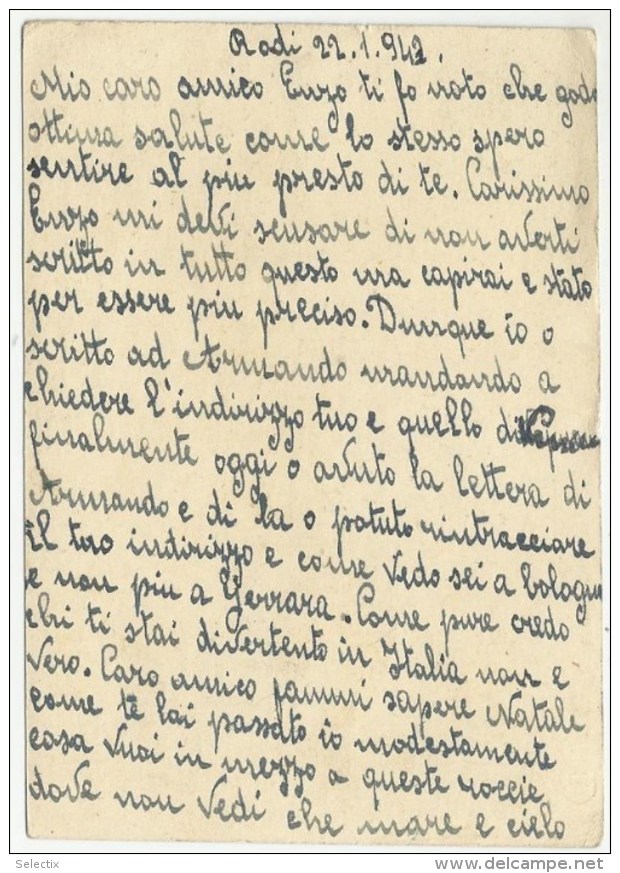 Rodi 22.1.942.
Mio caro amico Enzo ti fo noto che godo
ottima salute come lo stesso spero
sentire al piu presto di te. Carissimo
Enzo mi devi scusare di non averti
scritto in tutto questo ma capirai e stato
per essere piu preciso. Dunque io o
scritto ad Armando mandando a
chiedere l'indirizzo tuo e quello di
finalmente oggi o avuto la lettera di
Armando e di la o potuto rintracciare
il tuo indirizzo e come vedo sei a Bologna
e non piu a Ferrara. Come pure credo
chi ti stai divertento in Italia non e
vero. Caro amico fammi sapere Natale
come te lai passato io modestamente
cosa vuoi in mezzo a queste roccie
dove non vedi che mare e cielo
Selectix
www.delcampe.net